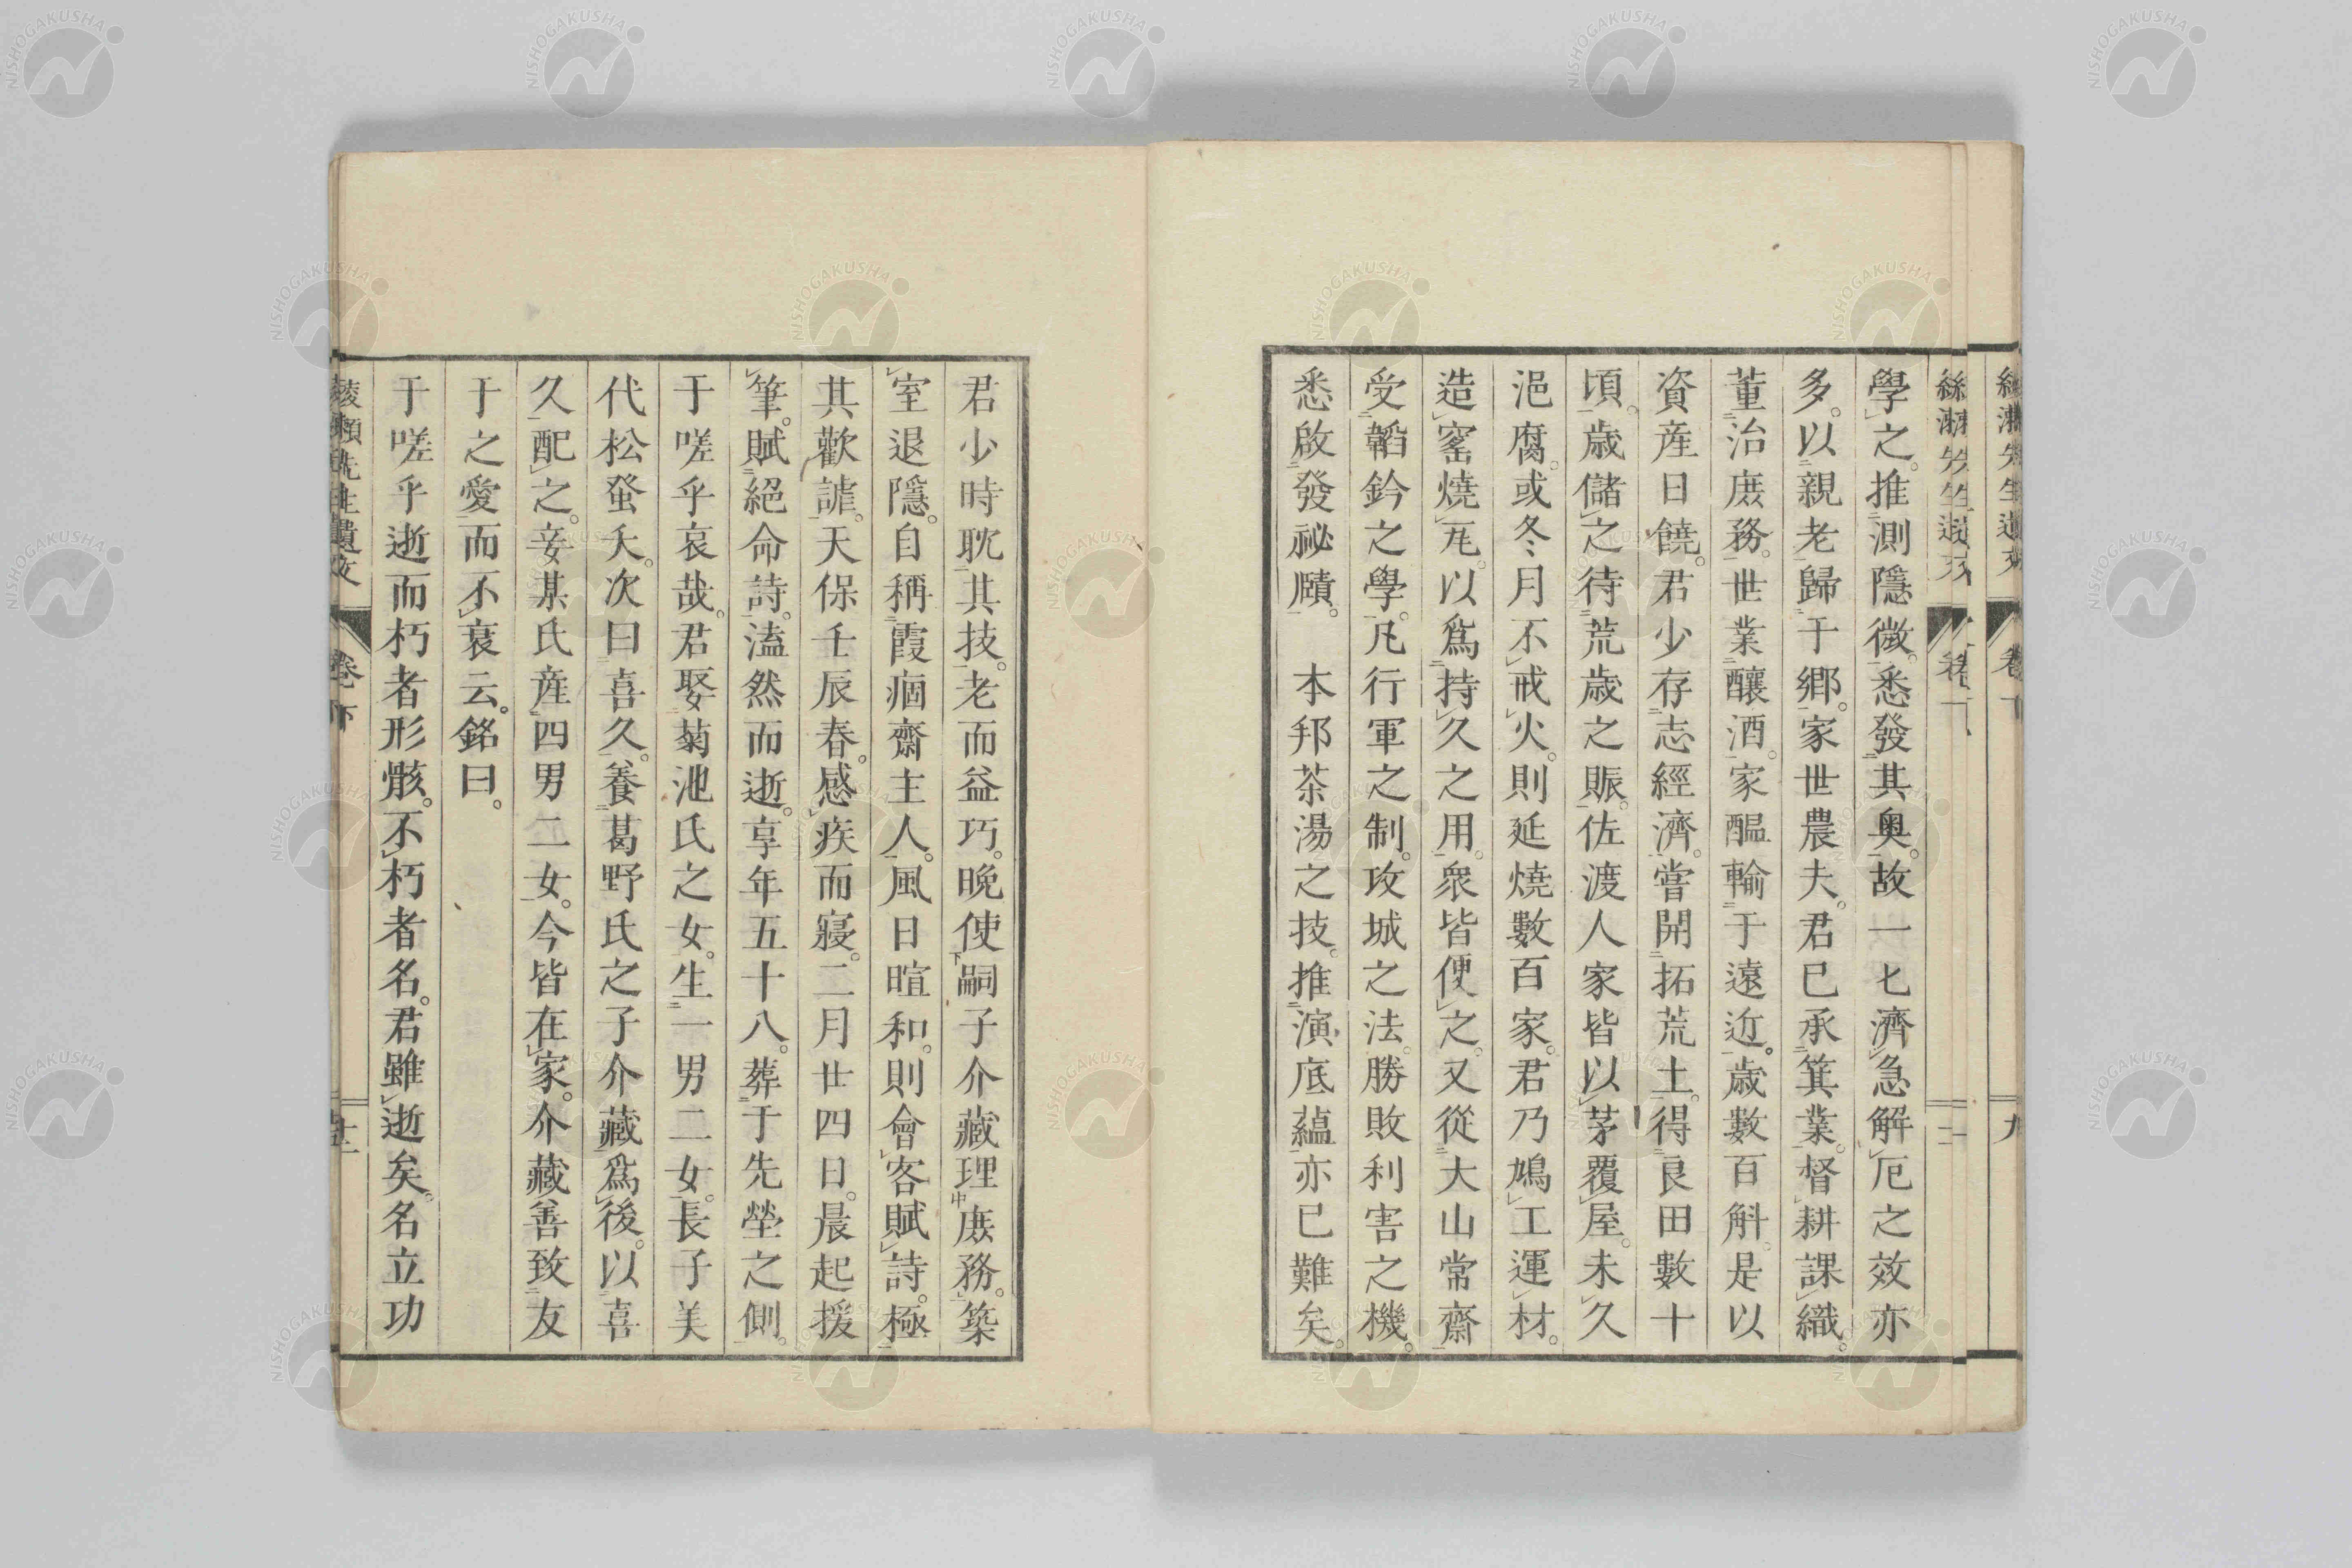 學之。推測隱微。悉發其奧。故一七濟急解厄之效亦
多。以親老歸于鄉。家世農夫。君已承箕業。督耕課織。
董治庶務。世業釀酒。家醞輸于遠近。歲數百斛。是以
資産日饒。君少存志經濟。嘗開拓荒土。得良田數十
頃。歲儲之待荒歲之賑。佐渡人家皆以茅覆屋。未久
浥腐。或冬月不戒火。則延燒數百家。君乃鳩工運材。
造窰燒瓦。以爲持久之用。衆皆便之。又從大山常齋
受韜鈐之學。凡行軍之制。攻城之法。勝敗利害之機。
悉啟發祕賾。　本邦茶湯之技。推演底蘊。亦已難矣。
君少時耽其技。老而益巧。晚使嗣子介藏理庶務。築
室退隱。自稱霞痼齋主人。風日暄和。則會客賦詩。極
其歡謔。天保壬辰春。感疾而寢。二月廿四日。晨起援
筆。賦絕命詩。溘然而逝。享年五十八。葬于先塋之側。
于嗟乎哀哉。君娶菊池氏之女。生一男二女。長子美
代松蚤夭。次曰喜久。養葛野氏之子介藏爲後。以喜
久配之。妾某氏産四男二女。今皆在家。介藏善致友
于之愛而不衰云。銘曰。
于嗟乎逝而朽者形骸。不朽者名。君雖逝矣。名立功
綾瀨先生遺文　卷下　十二